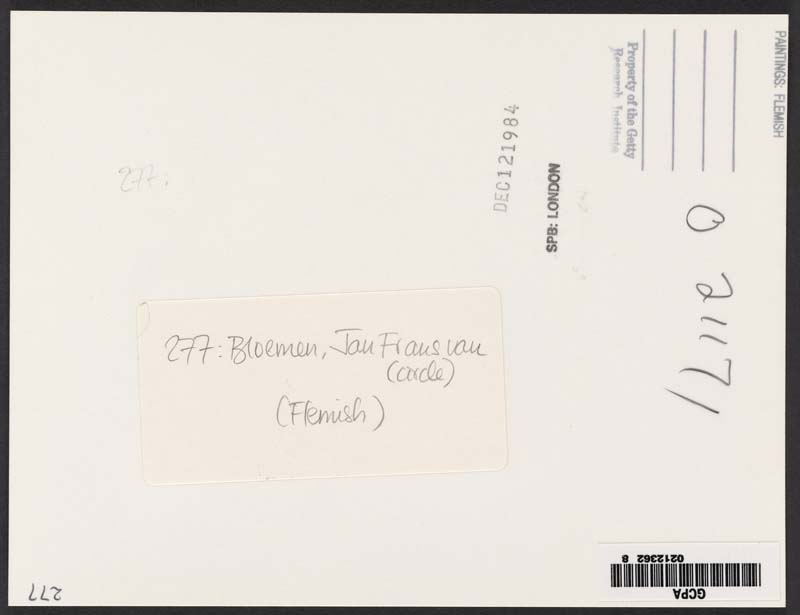 PAINTINGS: FLEMISH
Property of the Getty
Research Institute
DEC 12 1984
SPB: LONDON
277.
0 21171
277: Bloemen, Jan Frans van
(circle)
(Flemish)
277
GCPA
0212362 8